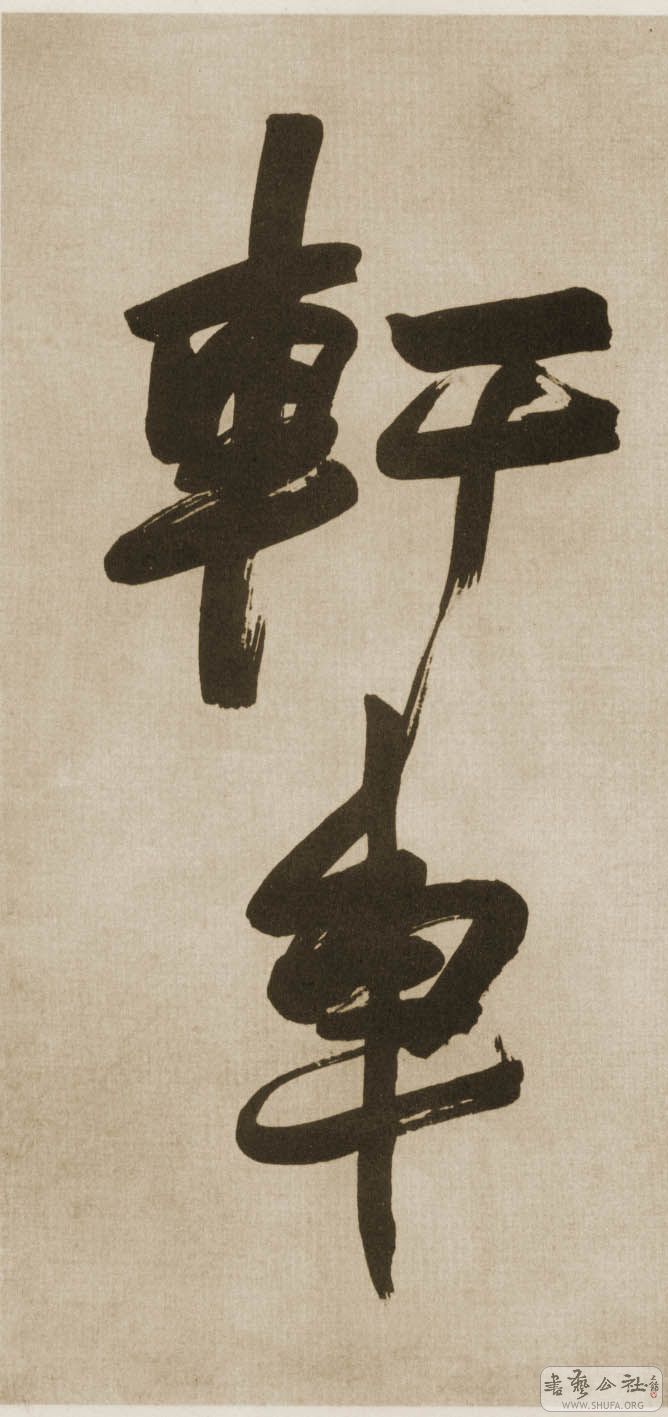 軒車
書藝公社
WWW.SHUFA.ORG